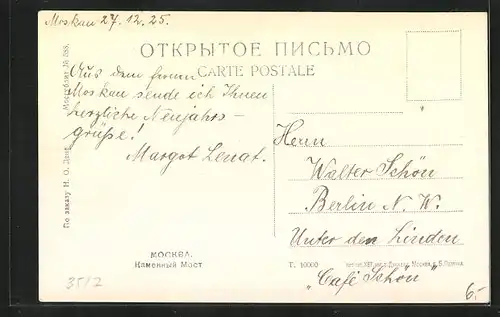 Moskau 27.12.25.
ОТКРЫТОЕ ПИСЬМО
CARTE POSTALE
Aus dem fernen
Moskau sende ich Ihnen
herzliche Neujahrs-
grüße!
Margot Lenat.
Herrn
Walter Schön
Berlin N. W.
Unter den Linden
"Café Schön"
МОСКВА.
Каменный Мост
Т. 10000
По заказу Н. О.
№ 688.
3512
6.-